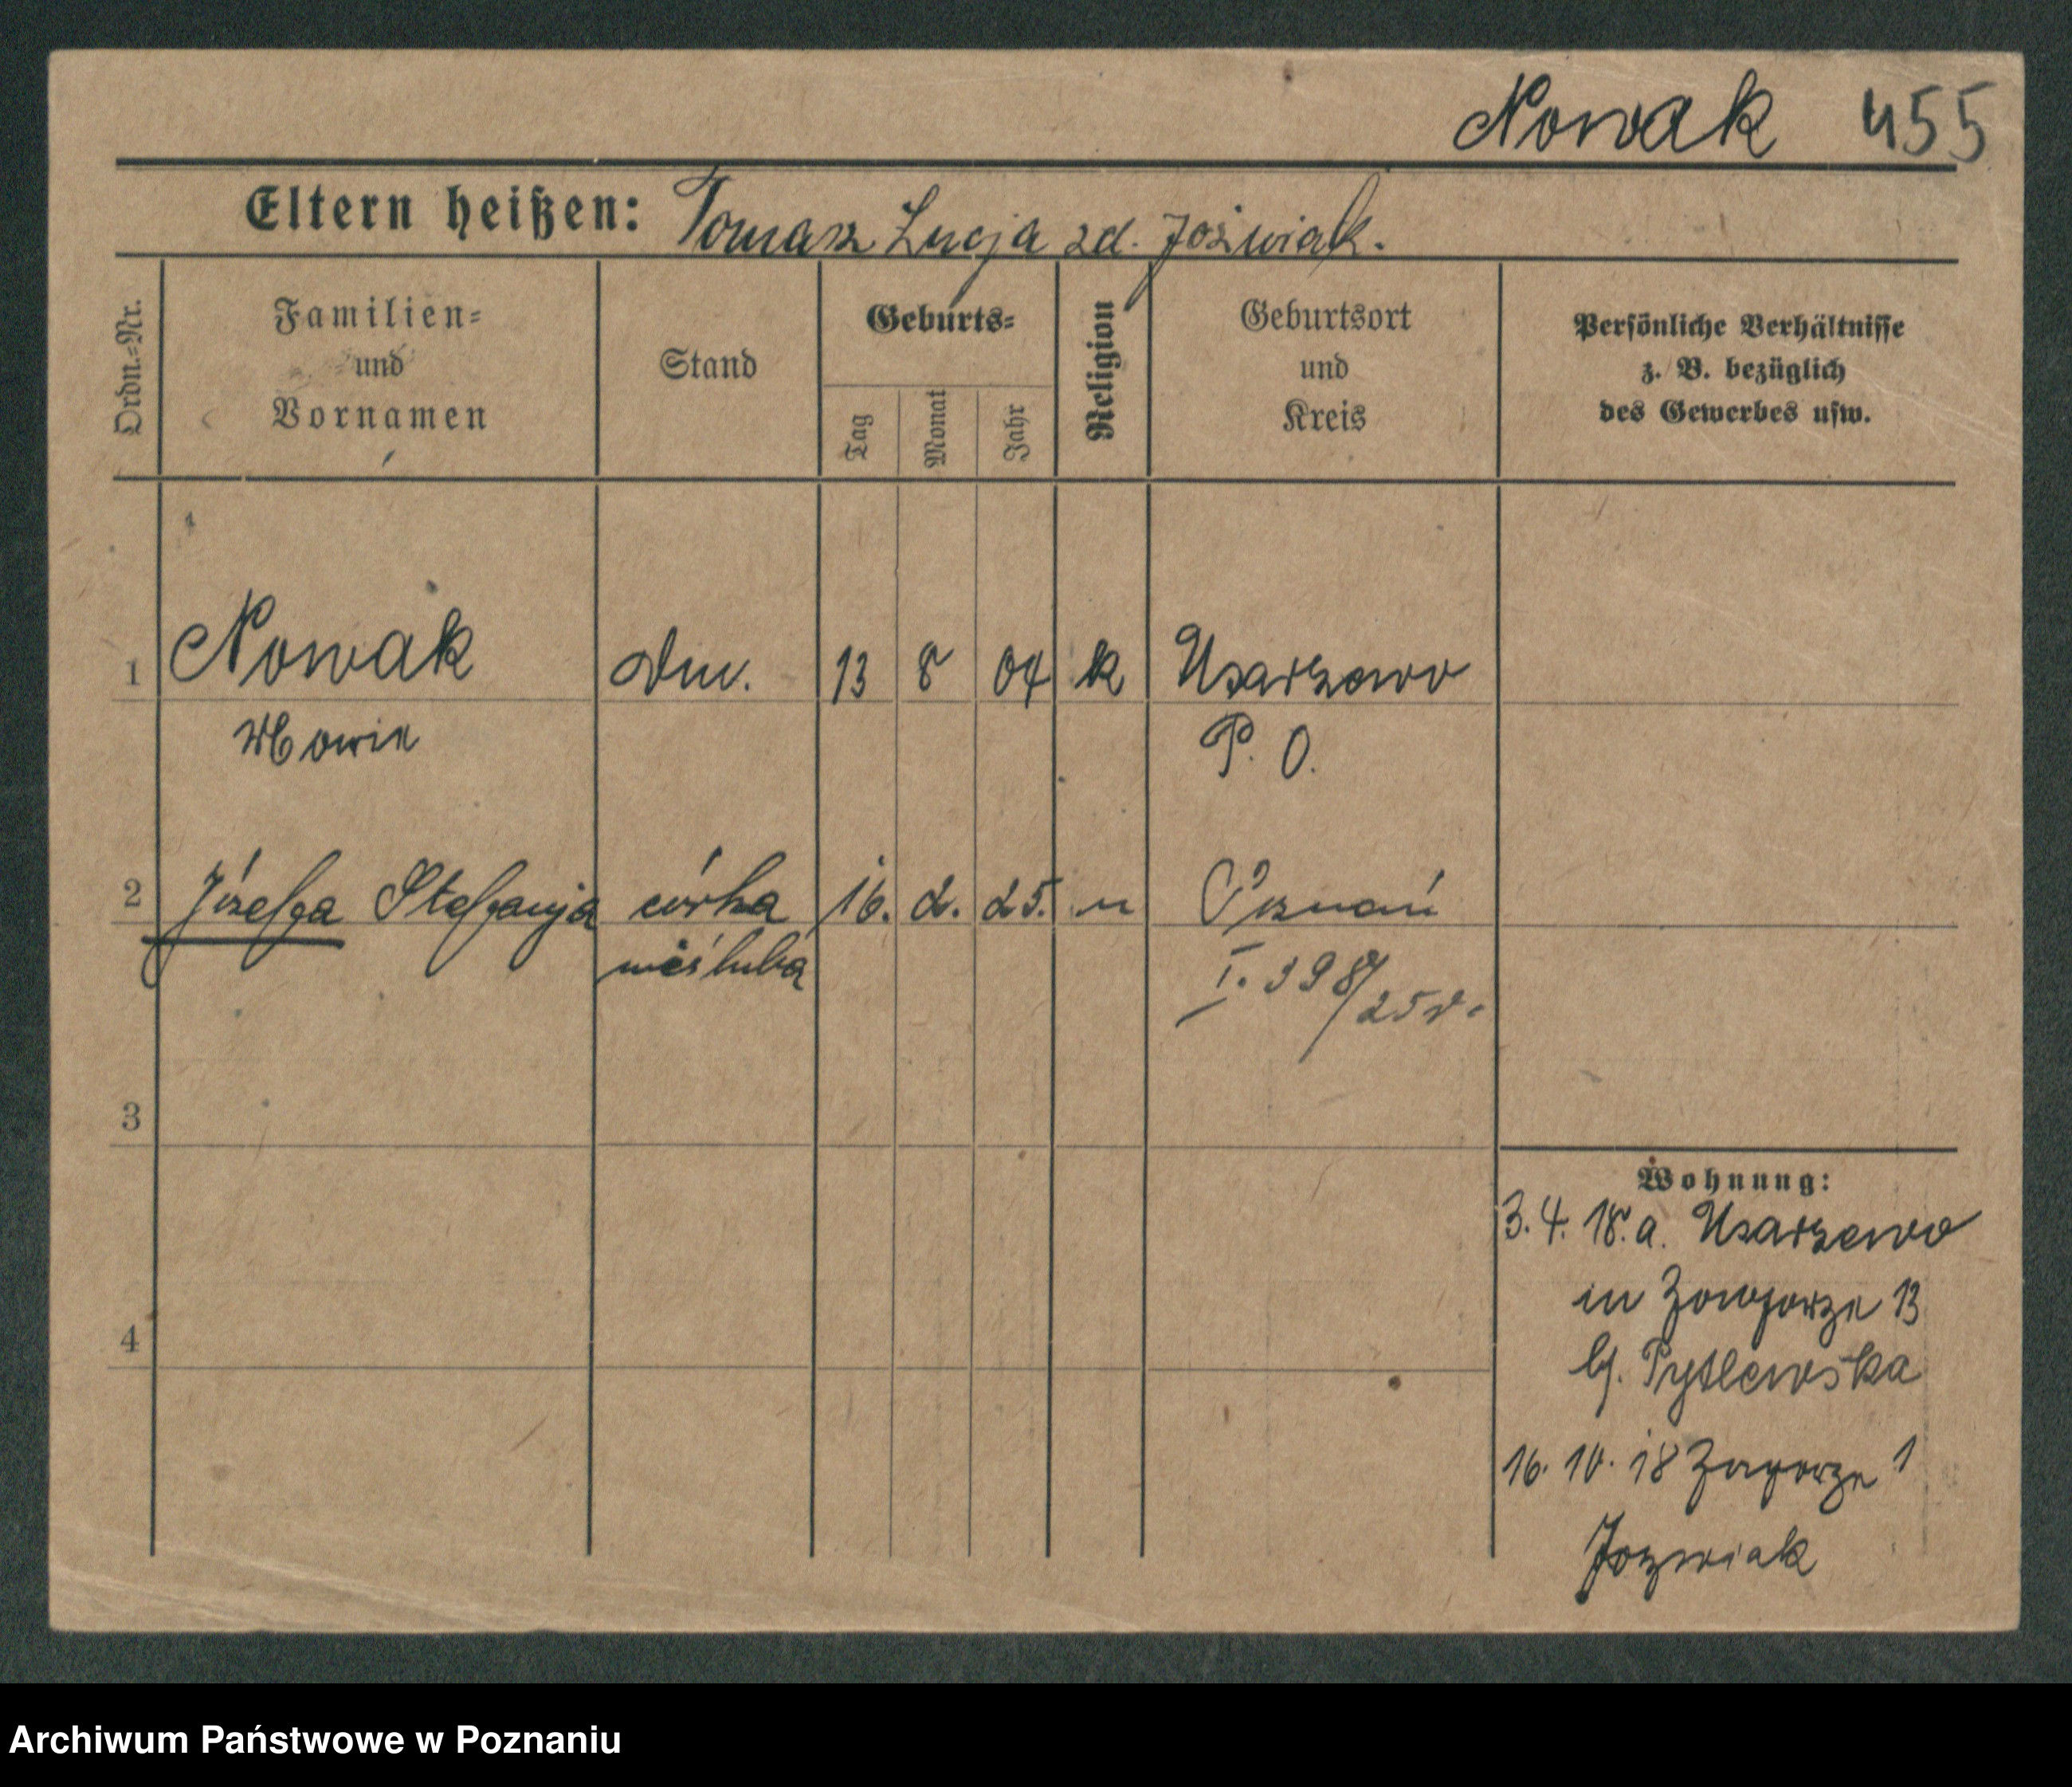 Nowak 455
Eltern heißen: Tomasz Lucja zd. Jóźwiak.
Ordn.-Nr.
Familien-
und
Vornamen
Stand
Geburts-
Tag
Monat
Jahr
Religion
Geburtsort
und
Kreis
Persönliche Verhältnisse
z. B. bezüglich
des Gewerbes usw.
1 Nowak Dm. 13 8 04 k Uzarzewo
Marie P. O.
2 Józefa Stefanja córka 16. 2. 25. " Poznań
nieślubna I. 398/25 r.
3
4
Wohnung:
3. 4. 18. a. Uzarzewo
in Zawgorze 13
bj. Pytlewska
16. 10. 18 Zagorze 1
Jozwiak
Archiwum Państwowe w Poznaniu